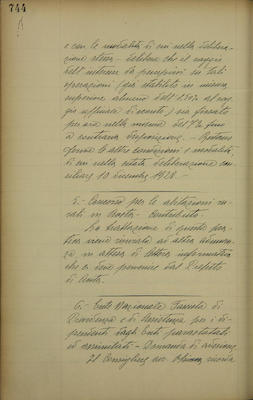 744
e con le modalità di cui nella delibera-
zione stessa - delibera che il saggio
dell'interesse da percepirsi su tali
operazioni (già stabilito in misura
superiore almeno dell'1.50% al sag-
gio ufficiale di sconto) sia fissato
per ora nella misura del 7% fino
a contraria disposizione. - Restano
ferme le altre condizioni e modalità
di cui nella citata deliberazione con-
siliare 10 dicembre 1928. -
5.- Concorso per le abitazioni ru-
rali in Aosta - Contributo.
La trattazione di questa pra-
tica viene rinviata ad altra adunan-
za in attesa di lettera informativa
che si deve pervenire dal Prefetto
di Aosta.
6.- Ente Nazionale Fascista di
Previdenza e di Assistenza per i di-
pendenti dagli Enti parastatali
ed assimilati - Domanda di adesione
Il Consigliere avv. ricorda